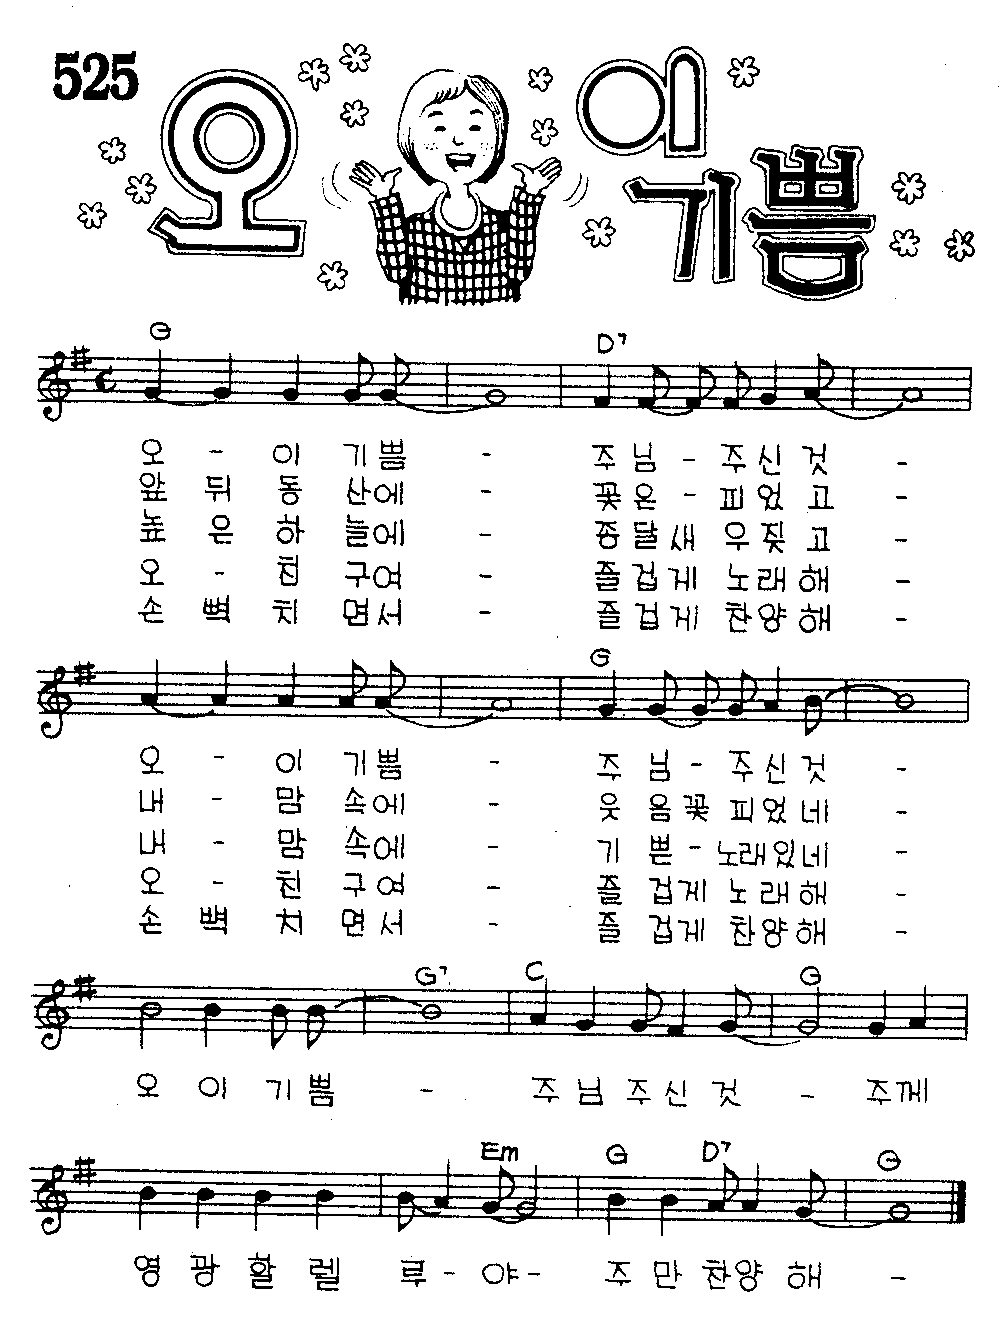 525
오 이 기쁨
G D7
오 - 이 기쁨 - 주 님 - 주 신 것 -
앞 뒤 동 산에 - 꽃 은 - 피 었 고 -
높 은 하 늘에 - 종 달 새 우 짖 고 -
오 - 친 구여 - 즐 겁 게 노 래 해 -
손 뼉 치 면서 - 즐 겁 게 찬 양 해 -
G
오 - 이 기쁨 - 주 님 - 주 신 것 -
내 - 맘 속에 - 웃 음 꽃 피 었 네 -
내 - 맘 속에 - 기 쁜 - 노래 있네 -
오 - 친 구여 - 즐 겁게 노 래 해 -
손 벽 치 면서 - 즐 겁게 찬 양 해 -
G7 C G
오 이 기 쁨 - 주 님 주 신 것 - 주께
Em G D7 G
영 광 할 렐 루 - 야 - 주 만 찬양 해 -